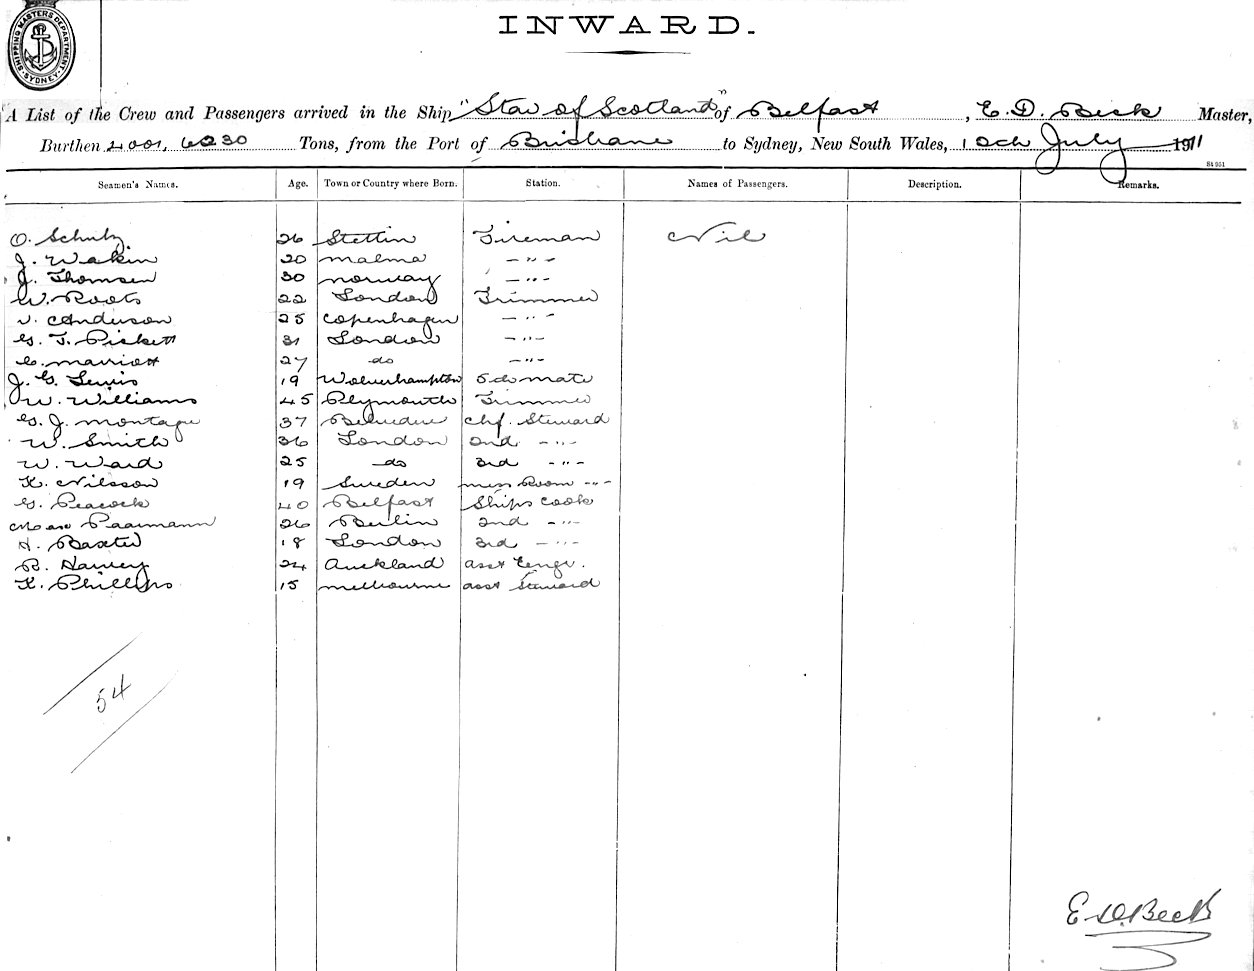 SHIPPING MASTERS DEPARTMENT. SYDNEY
INWARD.
A List of the Crew and Passengers arrived in the Ship "Star of Scotland" of Belfast, E. D. Beck Master,
Burthen 4001, 6230 Tons, from the Port of Brisbane to Sydney, New South Wales, 10th July 1911
St 951
Seamen's Names. Age. Town or Country where Born. Station. Names of Passengers. Description. Remarks.
O. Schulz 26 Stettin Fireman Nil
J. Wakin 20 Malmo -"-
J. Thomsen 30 Norway -"-
W. Roots 22 London Trimmer
J. Anderson 25 Copenhagen -"-
G. F. Pickett 31 London -"-
C. Marriott 27 do -"-
J. G. Lewis 19 Wolverhampton 5th mate
W. Williams 45 Plymouth Trimmer
G. J. Montague 37 Belvedere chf. Steward
W. Smith 36 London 2nd -"-
W. Ward 25 do 3rd -"-
K. Nilsson 19 Sweden Mess Room -"-
G. Peacock 40 Belfast Ships Cook
Paarmann 26 Berlin 2nd -"-
H. Baxter 18 London 3rd -"-
R. Harvey 24 Auckland asst Engr.
K. Phillips 15 Melbourne asst Steward
54
E. D. Beck